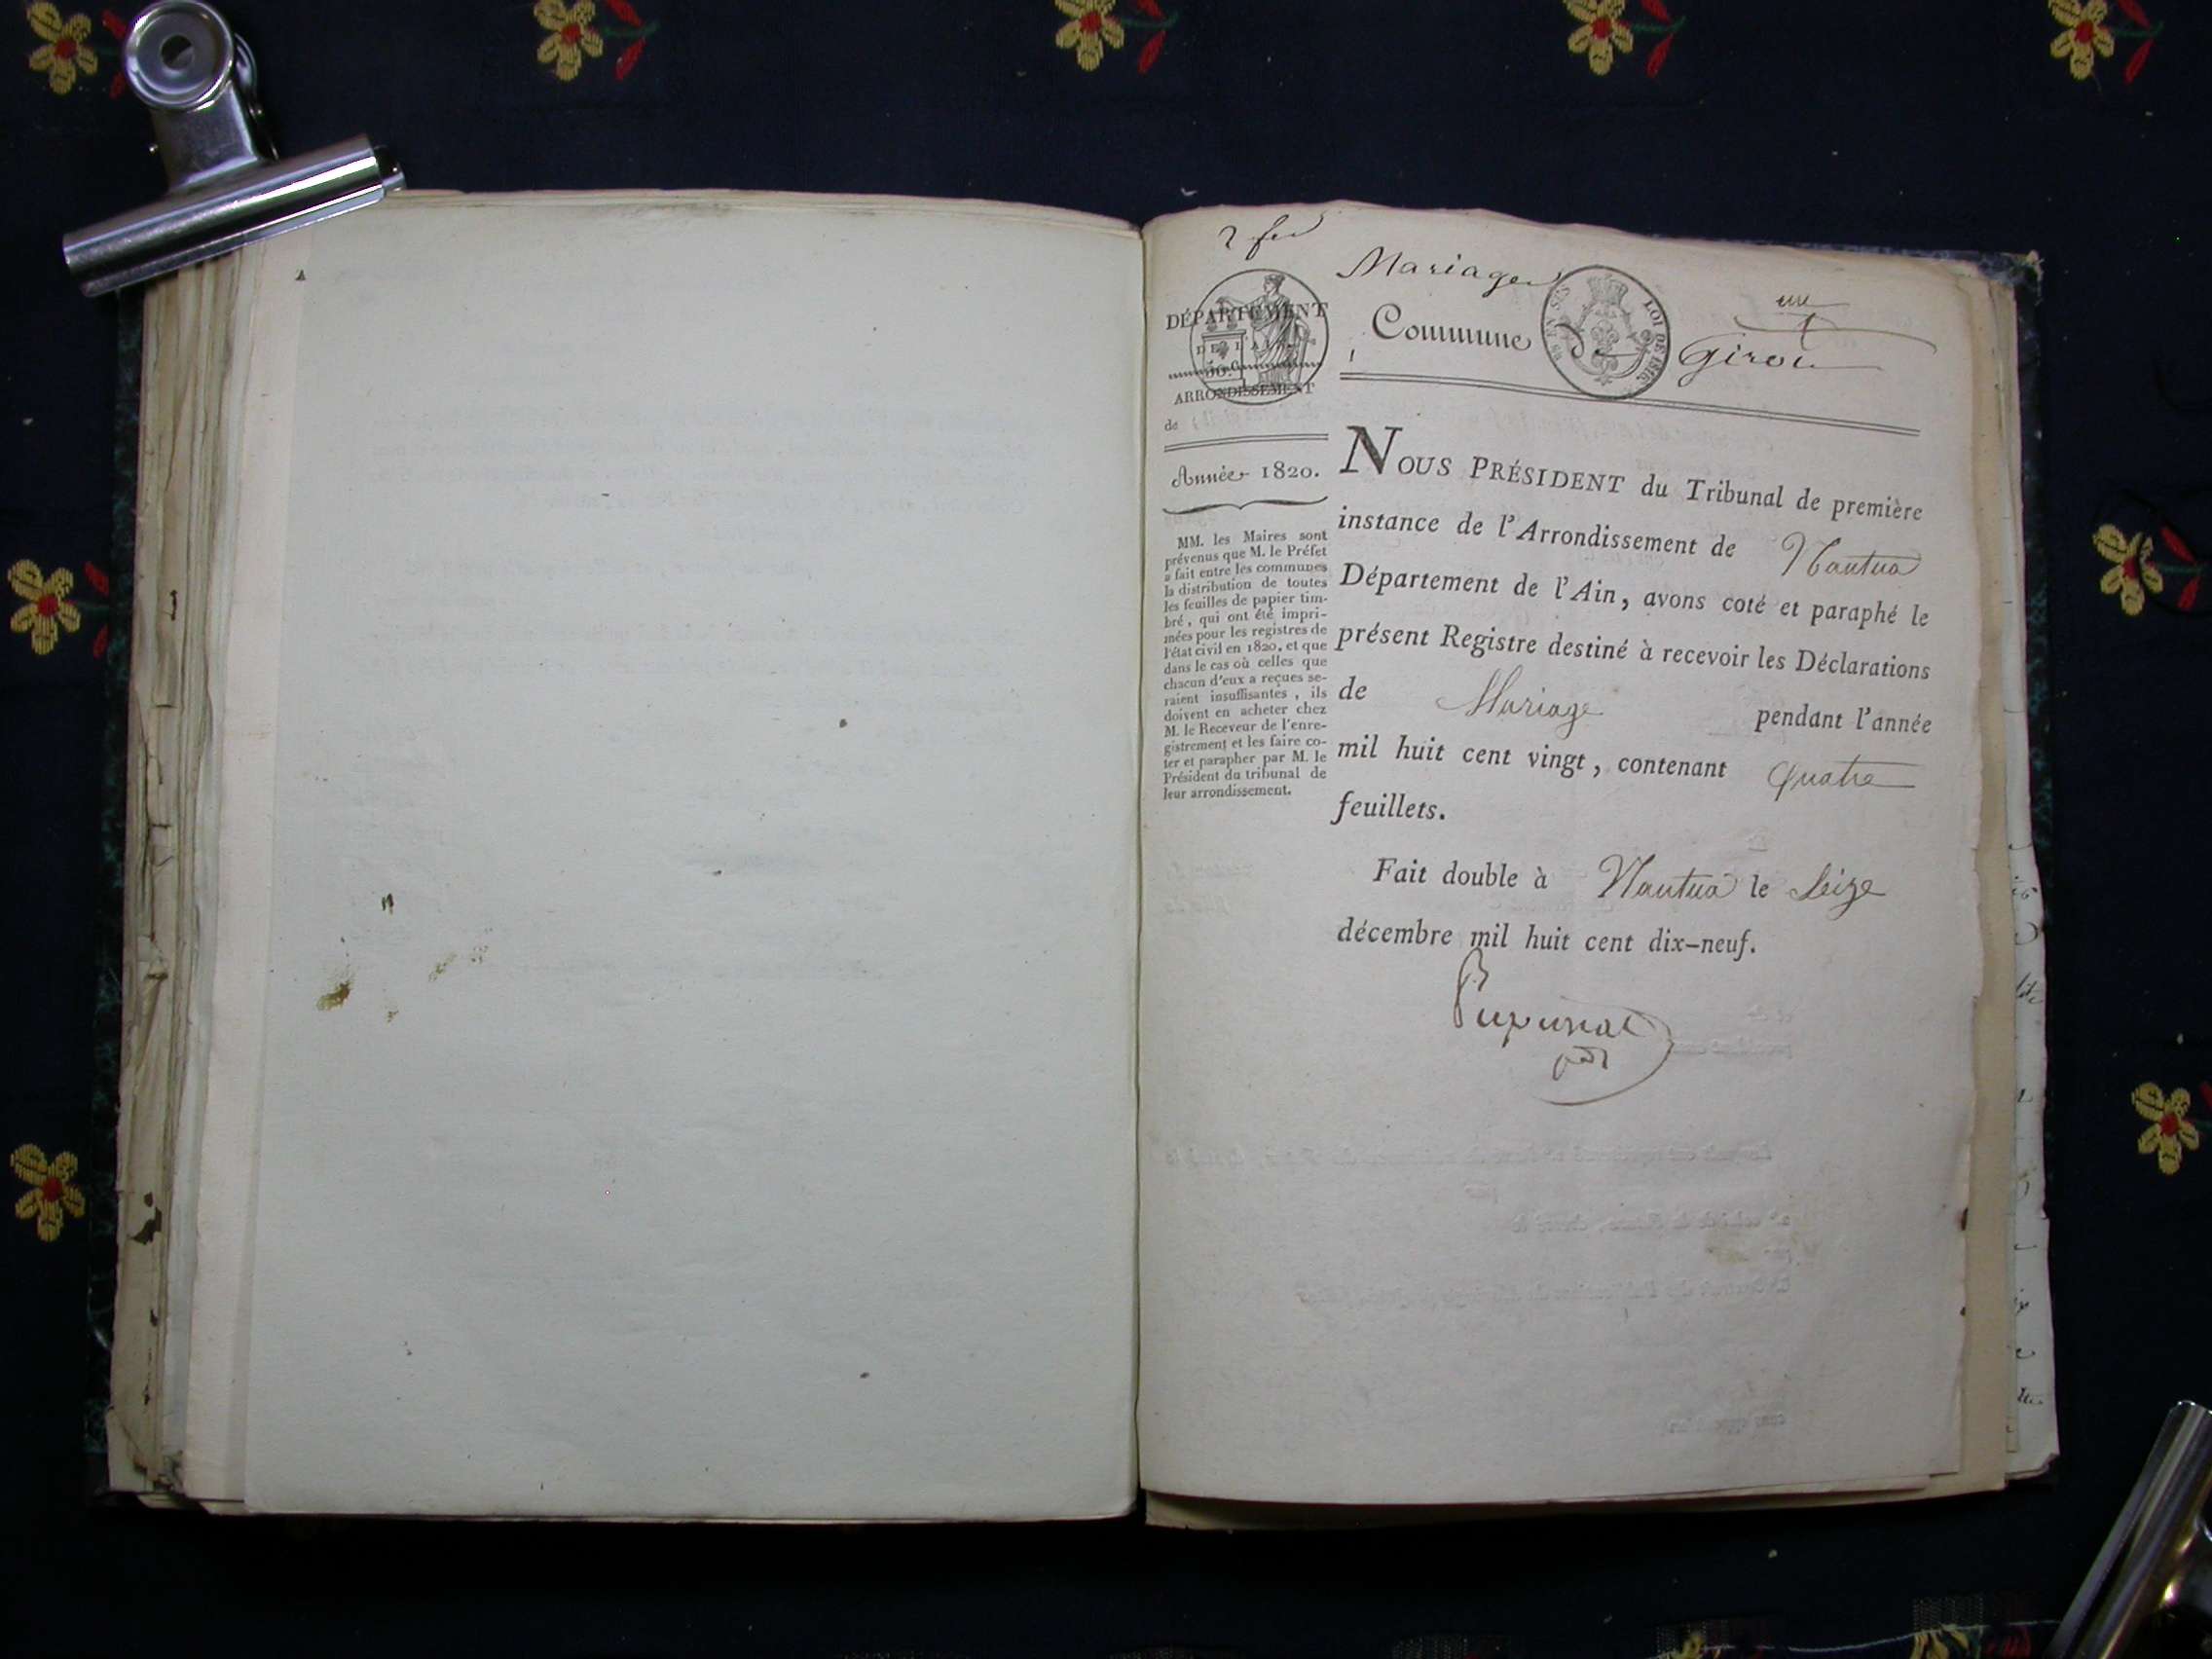 2 feu
Mariages
DÉPARTEMENT
DE L'AIN
50 C
ARRONDISSEMENT
de
Commune De Giron
LOI DE 1816
un
Année 1820.
MM. les Maires sont
prévenus que M. le Préfet
a fait entre les communes
la distribution de toutes
les feuilles de papier tim-
bré, qui ont été impri-
mées pour les registres de
l'état civil en 1820, et que
dans le cas où celles que
chacun d'eux a reçues se-
raient insuffisantes, ils
doivent en acheter chez
M. le Receveur de l'enre-
gistrement et les faire co-
ter et parapher par M. le
Président du tribunal de
leur arrondissement.
NOUS PRÉSIDENT du Tribunal de première
instance de l'Arrondissement de Nantua
Département de l'Ain, avons coté et paraphé le
présent Registre destiné à recevoir les Déclarations
de Mariage pendant l'année
mil huit cent vingt, contenant Quatre
feuillets.
Fait double à Nantua le Seize
décembre mil huit cent dix-neuf.